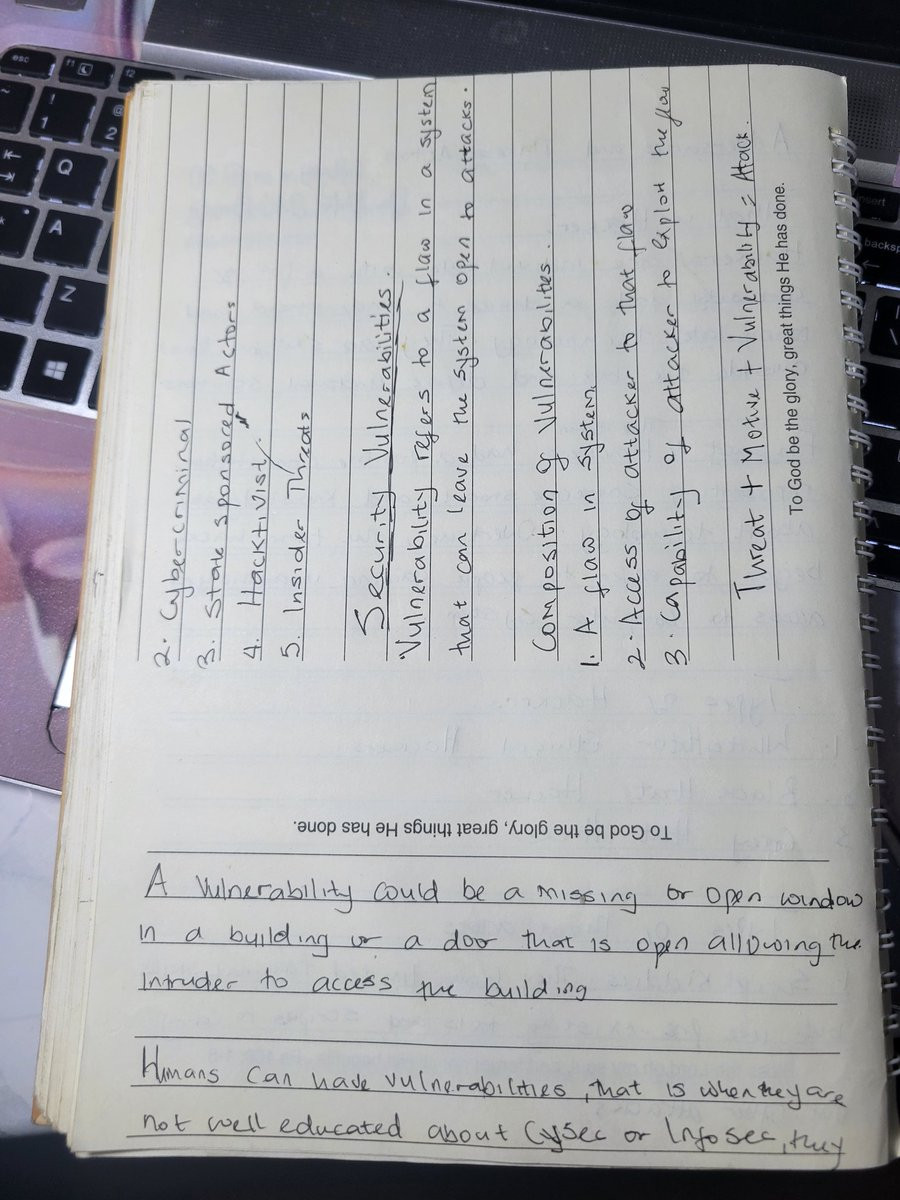 2. Cybercriminal
3. State Sponsored Actors
4. Hacktivist
5. Insider Threats
Security Vulnerabilities.
Vulnerability refers to a flaw in a system
that can leave the system open to attacks.
Composition of Vulnerabilities.
1. A flaw in system.
2. Access of attacker to that flaw
3. Capability of attacker to exploit the flaw
Threat + Motive + Vulnerability = Attack.
To God be the glory, great things He has done.
To God be the glory, great things He has done.
A Vulnerability could be a missing or open window
in a building or a door that is open allowing the
intruder to access the building
Humans can have vulnerabilities, that is when they are
not well educated about CySec or InfoSec, they
esc
f1
f2
1
2
Q
A
Z
insert
backsp